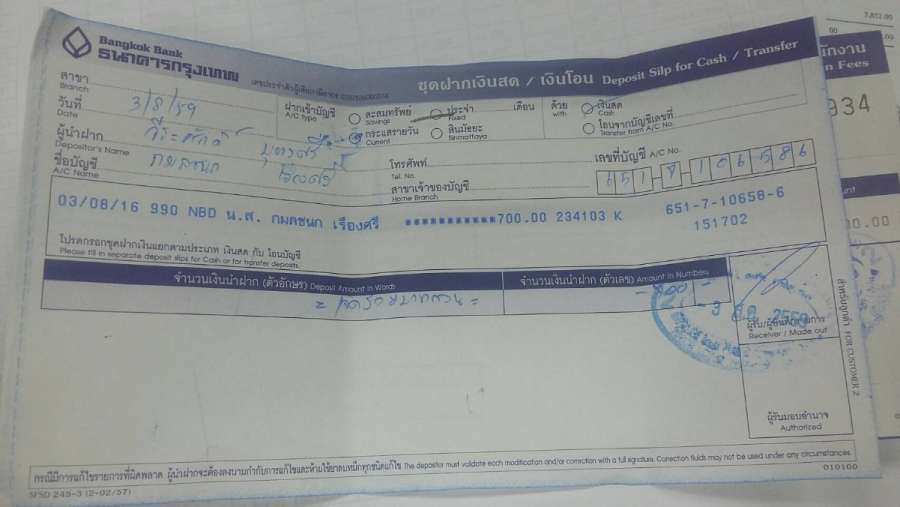 Bangkok Bank
ธนาคารกรุงเทพ
ชุดฝากเงินสด / เงินโอน Deposit Slip for Cash / Transfer
สาขา
Branch
วันที่ 3/8/59
Date
ฝากเข้าบัญชี
A/C Type
สะสมทรัพย์
Savings
ประจำ
Fixed
เดือน
กระแสรายวัน
Current
สินมัธยะ
Sinmattaya
ด้วย
with
เงินสด
Cash
โอนจากบัญชีเลขที่
Transfer from A/C No.
ผู้นำฝาก
Depositor's Name
โทรศัพท์
Tel. No.
ชื่อบัญชี
A/C Name
สาขาเจ้าของบัญชี
Home Branch
เลขที่บัญชี A/C No.
651 7 106586
03/08/16 990 NBD น.ส. กมลชนก เรืองศรี ***********700.00 234103 K 651-7-10658-6
151702
โปรดกรอกชุดฝากเงินแยกตามประเภท เงินสด กับ โอนบัญชี
Please fill in separate deposit slips for Cash or for transfer deposits.
จำนวนเงินนำฝาก (ตัวอักษร) Deposit Amount in Words
จำนวนเงินนำฝาก (ตัวเลข) Amount in Numbers
= เจ็ดร้อยบาทถ้วน =
-3 ส.ค. 2559
ผู้รับ/ผู้บันทึกรายการ
Receiver / Made out
ผู้รับมอบอำนาจ
Authorized
สำหรับลูกค้า FOR CUSTOMER 2
กรณีมีการแก้ไขรายการที่ผิดพลาด ผู้นำฝากจะต้องลงนามกำกับการแก้ไขและห้ามใช้ยาลบหมึกทุกชนิดแก้ไข The depositor must validate each modification and/or correction with a full signature. Correction fluids may not be used under any circumstances.
SFSD 245-3 (2-02/57)
010100
7,852.00
00
n Fees
934